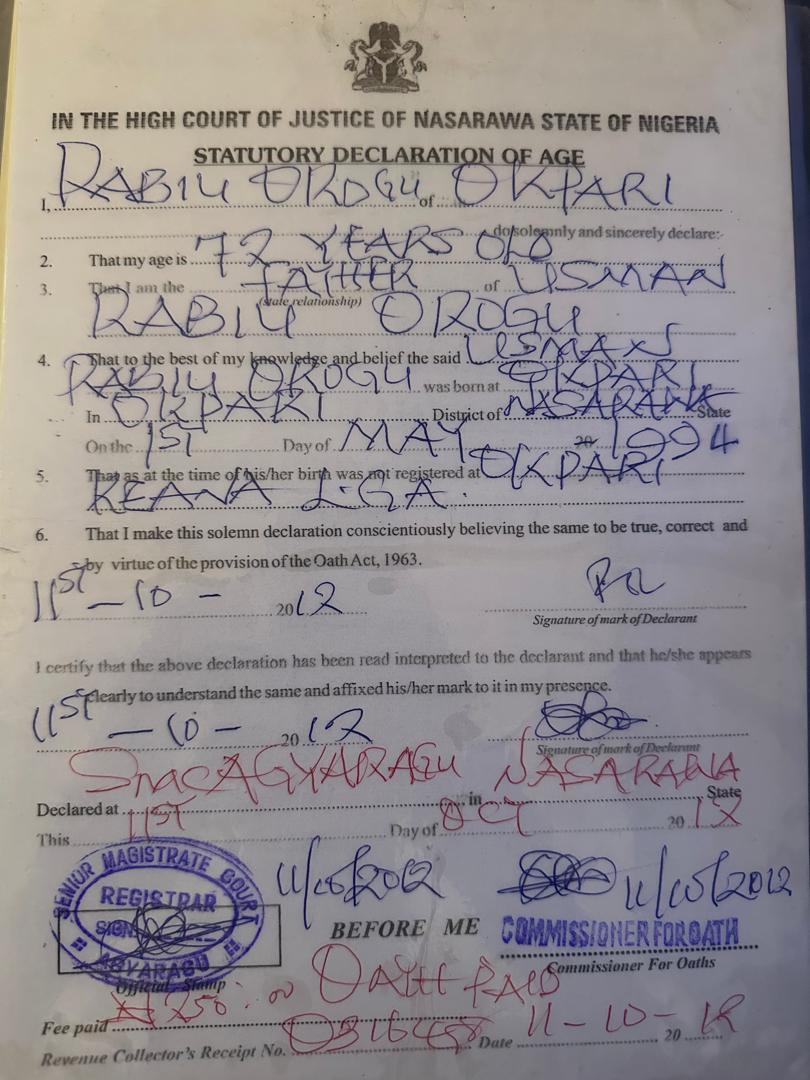 IN THE HIGH COURT OF JUSTICE OF NASARAWA STATE OF NIGERIA
STATUTORY DECLARATION OF AGE
I, RABIU OROGU of OKPARI
do solemnly and sincerely declare:-
2. That my age is 72 YEARS OLD
3. That I am the FATHER of USMAN
(state relationship)
RABIU OROGU
4. That to the best of my knowledge and belief the said USMAN
RABIU OROGU was born at OKPARI
In OKPARI District of NASARAWA State
On the 1ST Day of MAY 20 1994
5. That as at the time of his/her birth was not registered at OKPARI
KEANA L.G.A.
6. That I make this solemn declaration conscientiously believing the same to be true, correct and
by virtue of the provision of the Oath Act, 1963.
11ST - 10 - 2012
Signature of mark of Declarant
I certify that the above declaration has been read interpreted to the declarant and that he/she appears
clearly to understand the same and affixed his/her mark to it in my presence.
11ST - 10 - 2012
Signature of mark of Declarant
Declared at SMAC AGYARAGU in NASARAWA State
This 11ST Day of OCT 2012
SENIOR MAGISTRATE COURT
REGISTRAR
SIGN
AGYARAGU
Official Stamp
11/10/2012
11/10/2012
BEFORE ME
COMMISSIONER FOR OATH
Commissioner For Oaths
OATH PAID
Fee paid ₦250:00
Revenue Collector's Receipt No. Date 11-10-20